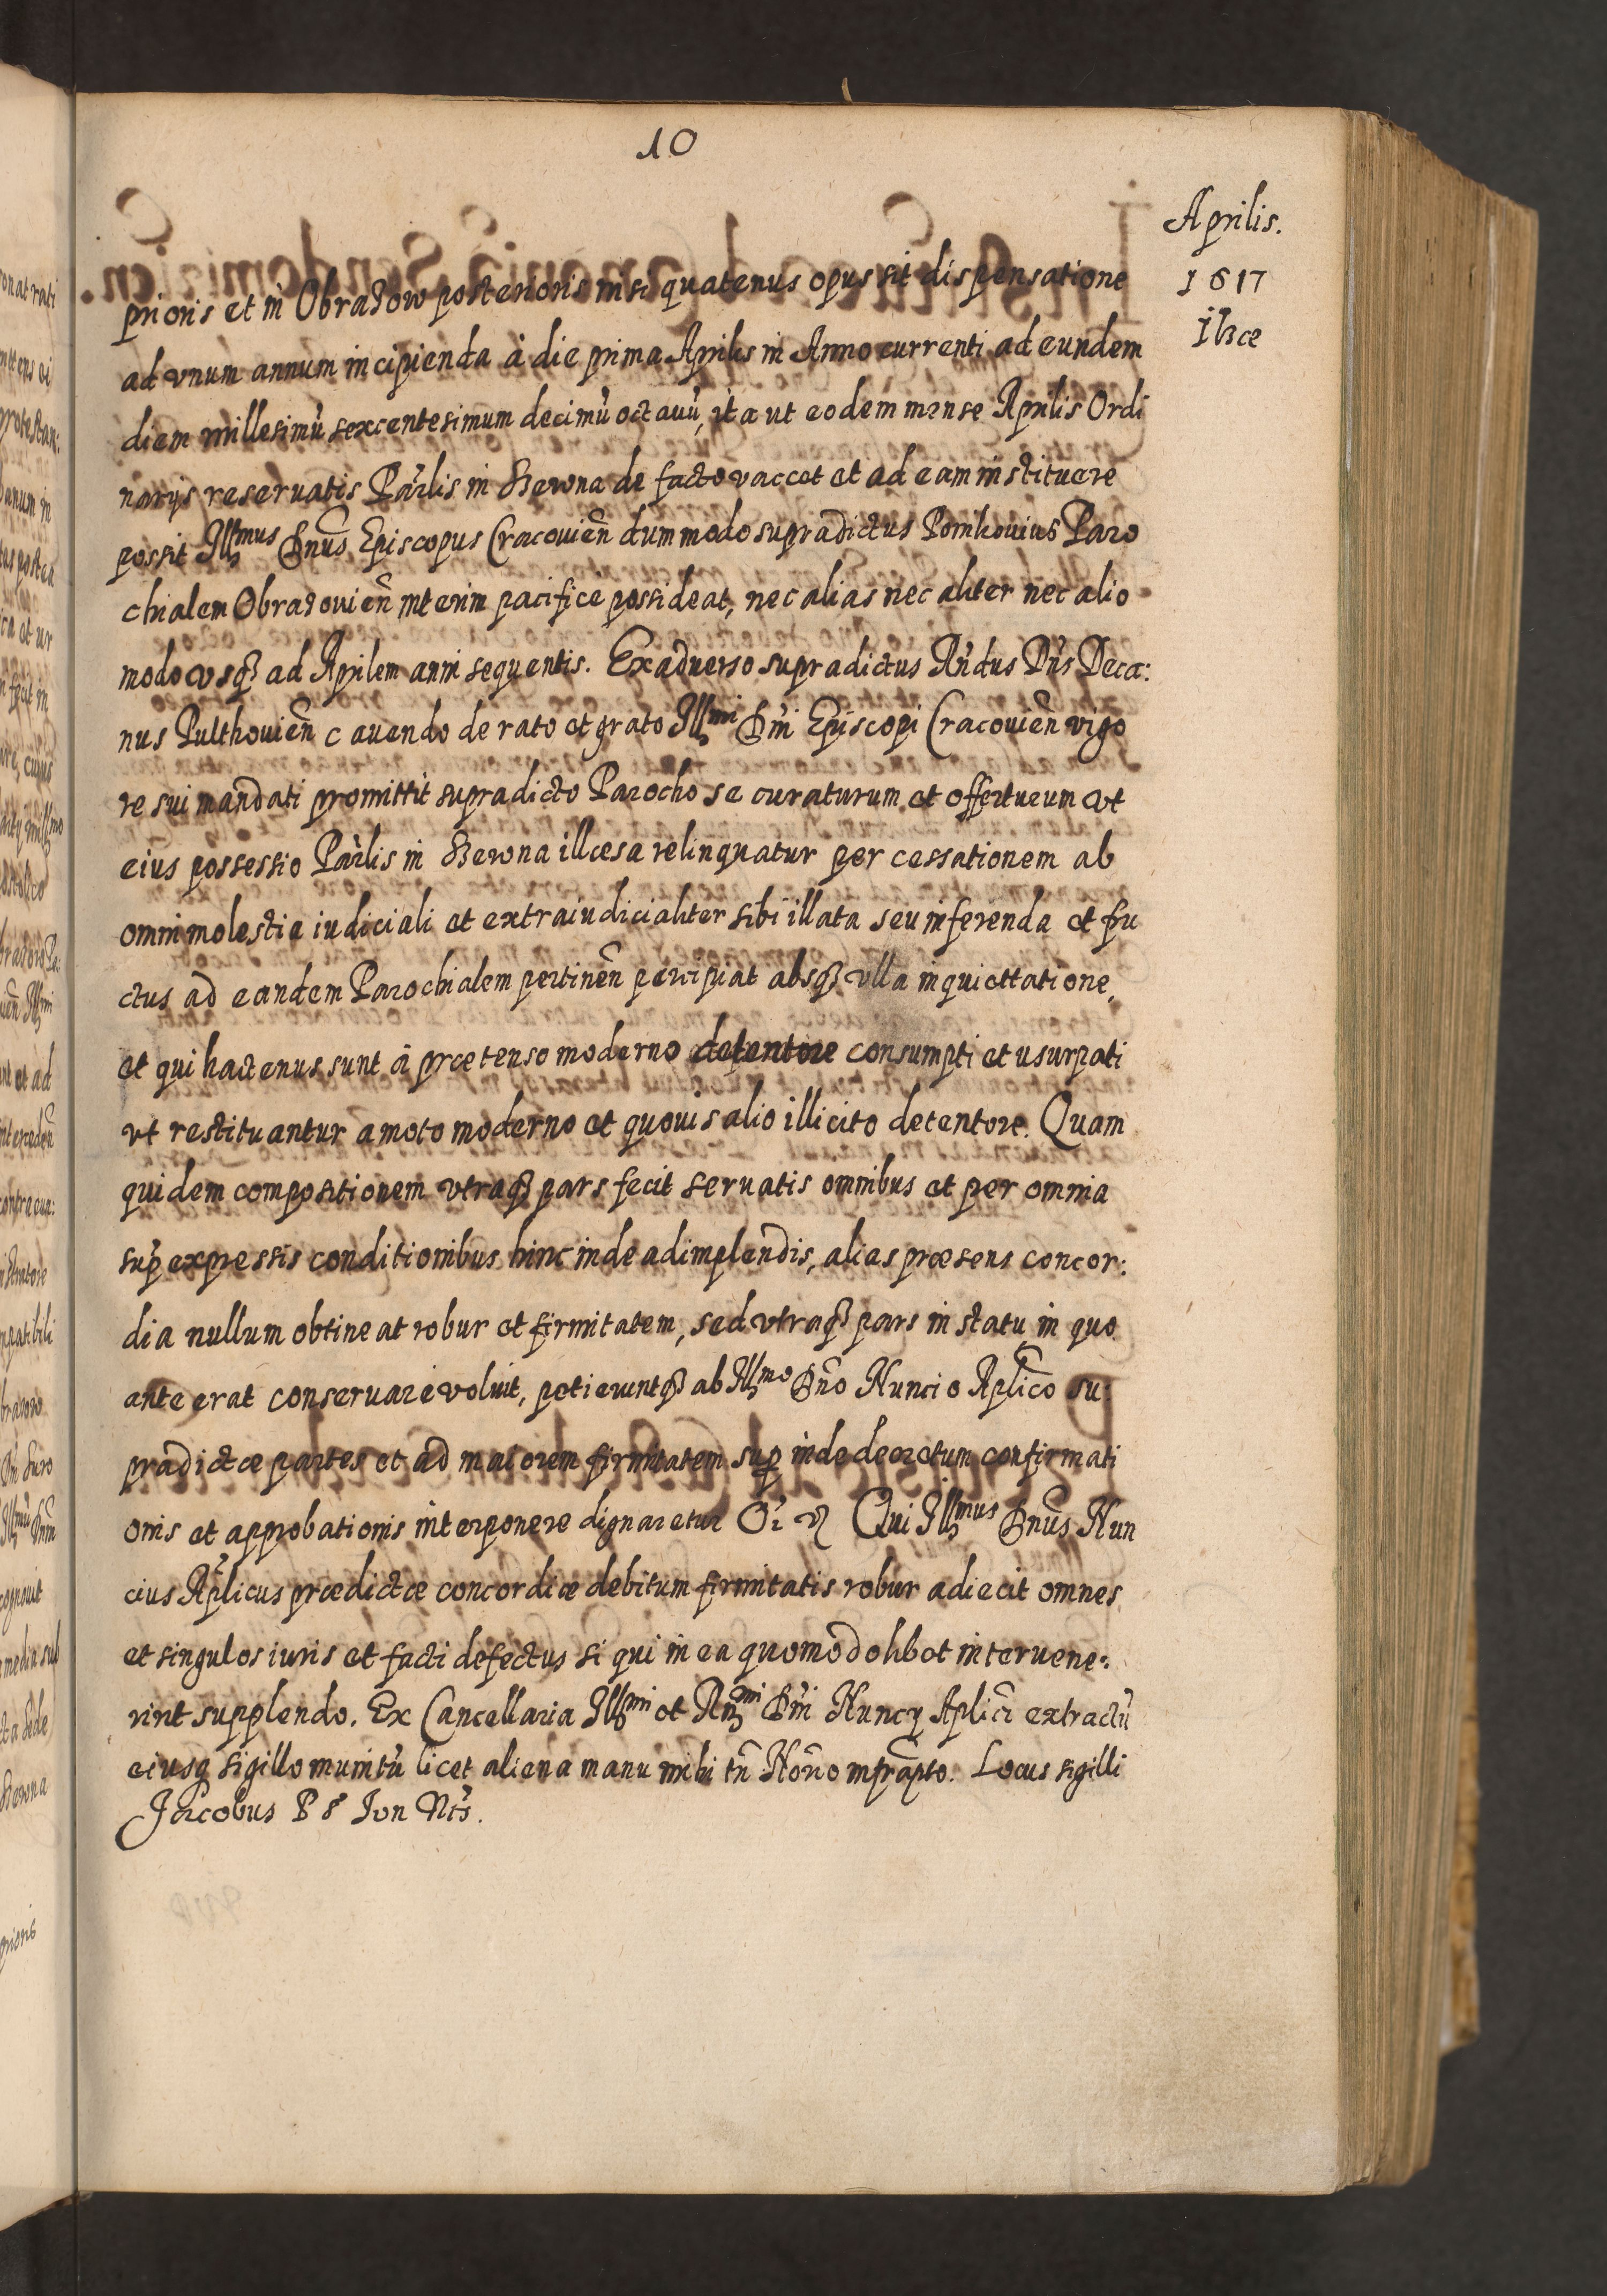 10
Aprilis.
1617
Ilzce
prioris et in Obrazow posterioris nisi quatenus opus sit dispensatione
ad vnum annum incipienda à die prima Aprilis in Anno currenti ad eundem
diem millesimũ sexcentesimum decimũ octauũ, ita ut eodem mense Aprilis Ordi
narijs reseruatis Parlis in Berwna de facto vaccet et ad eam instituere
possit Illmus Dnus Episcopus Cracouien dummodo supradictus Pomkouius Paro
chialem Obrazouien interim pacifice possideat, nec alias nec aliter nec alio
modo vsq ad Aprilem anni sequentis. Ex aduerso supradictus Rndus Dns Deca:
nus Pulthouien cauendo de rato et grato Illmi Dni Episcopi Cracouien vigo
re sui mandati promittit supradicto Parocho se curaturum et effecturum vt
eius possessio Parlis in Berwna illæsa relinquatur per cessationem ab
omni molestia iudiciali et extraiudicialiter sibi illata seu inferenda et fru
ctus ad eandem Parochialem pertinen percipiat absq vlla inquiettatione,
et qui hactenus sunt à prætenso moderno detentore consumpti et usurpati
vt restituantur amoto moderno et quouis alio illicito detentore. Quam
quidem compositionem vtraq pars fecit seruatis omnibus et per omnia
sup expressis conditionibus hinc inde adimplendis, alias præsens concor:
dia nullum obtineat robur et firmitatem, sed vtraq pars in statu in quo
ante erat conseruare voluit, petieruntq ab Illmo Dno Nuncio Aplico su:
pradictæ partes et ad maiorem firmitatem sup inde decretum confirmati
onis et approbationis interponere dignaretur Qui Illmus Dnus Nun
cius Aplicus prædictæ concordiæ debitum firmitatis robur adiecit omnes
et singulos iuris et facti defectus si qui in ea quomodolibet interuene:
rint supplendo. Ex Cancellaria Illmi et Rmi Dni Nuncij Aplici extractũ
eiusq sigillo munitũ licet aliena manu mihi tn Horio Locus sigilli
Jacobus Nts.